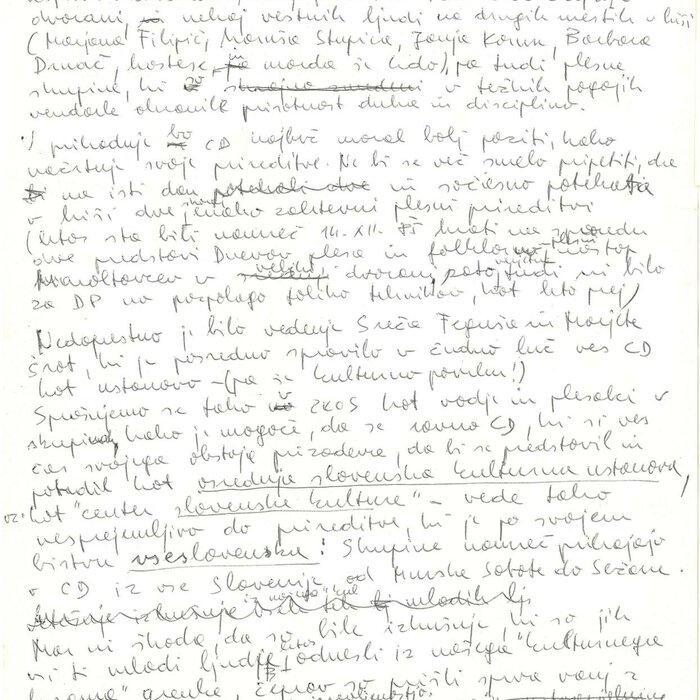 dvorani, nekaj vestnih ljudi na drugih mestih v hiši
(Marjana Filipič, Maruša Stupica, Barbara
Drnač, hostese, in morda še kdo), pa tudi plesne
skupine, ki so v težkih pogojih
vendarle ohranile prisotnost duha in disciplino.
prihodnje bo CD najbrž moral bolj paziti, kako
načrtuje svoje prireditve. Ne bi se več smelo pripetiti, da
na isti dan in sočasno potekata
v hiši dve enako zahtevni plesni prireditvi
(letos sta bili namreč 14. XII. 85 hkrati na sporedu
dve predstavi Dnevov plesa in nastop
v veliki dvorani, zato tudi ni bilo
za DP na razpolago toliko tehnikov, kot leto prej)
Nedopustno je bilo vedenje Sreča Feguša in Marjete
Šrot, ki je posredno spravilo v čudno luč ves CD
kot ustanovo – (pa še kulturno povrhu!)
Sprašujemo se tako v ZKOS kot vodje in plesalci v
skupinah, kako je mogoče, da se ravno CD, ki si ves
čas svojega obstoja prizadeva, da bi se predstavil in
potrdil kot osrednja slovenska kulturna ustanova,
oz. kot "center slovenske kulture" – vede tako
nesprejemljivo do prireditve, ki je po svojem
bistvu vseslovenska! Skupine namreč prihajajo
v CD iz vse Slovenije, od Murske Sobote do Sežane.
Mar ni škoda, da so bile izkušnje, ki so jih
vsi ti mladi ljudje letos odnesli iz našega "kulturnega
grenke, čeprav so prišli sprva vanj z